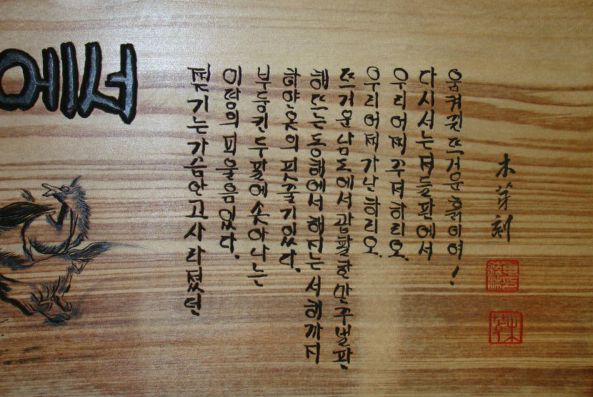 에서
찢기는가슴안고사라졌던
이땅의피울음있다.
부둥킨두팔에솟아나는
하얀옷의핏줄기있다.
해뜨는동해에서해지는서해까지
뜨거운남도에서광활한만주벌판
우리어찌가난하리오.
우리어찌주저하리오.
다시서는저들판에서
움켜쥔뜨거운흙이여!
木芽刻